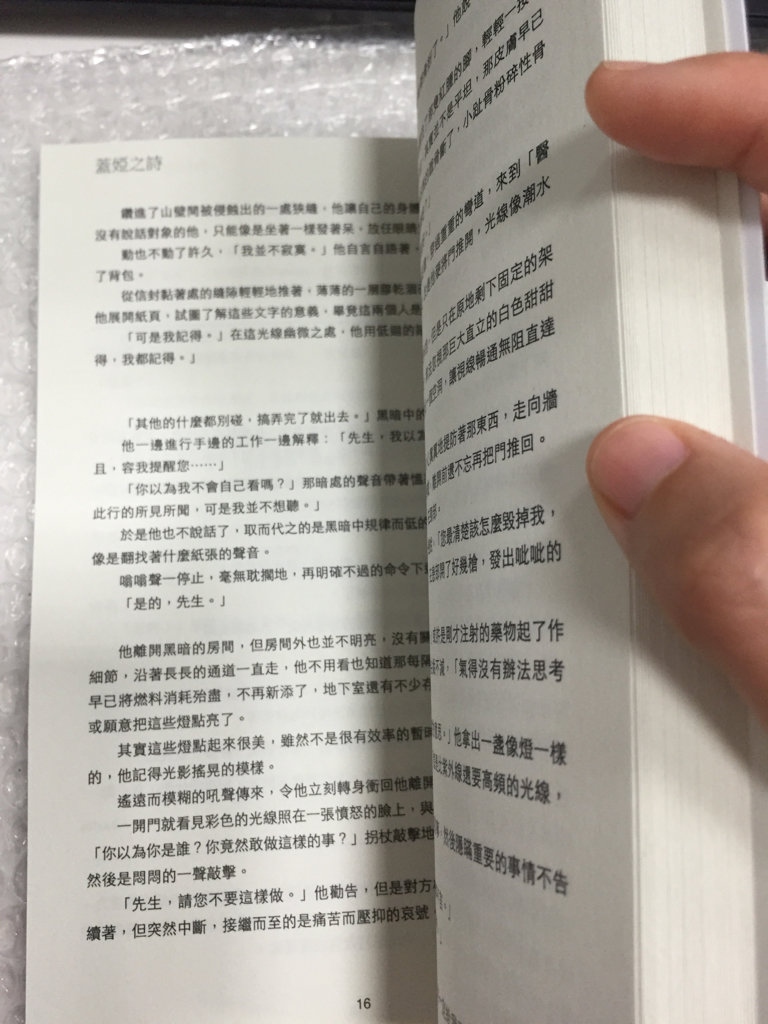 蓋婭之詩
鑽進了山壁間被侵蝕出的一處狹縫，他讓自己的身體
沒有說話對象的他，只能像是坐著一樣發著呆，放任眼睛
動也不動了許久，「我並不寂寞。」他自言自語著，
了背包。
從信封黏著處的縫隙輕輕地推著，薄薄的一層膠乾
他展開紙頁，試圖了解這些文字的意義，畢竟這兩個人是
「可是我記得。」在這光線幽微之處，他用低
得，我都記得。」
「其他的什麼都別碰，搞弄完了就出去。」黑暗中的
他一邊進行手邊的工作一邊解釋：「先生，我以為
且，容我提醒您……」
「你以為我不會自己看嗎？」那暗處的聲音帶著
此行的所見所聞，可是我並不想聽。」
於是他也不說話了，取而代之的是黑暗中規律而低的
像是翻找著什麼紙張的聲音。
嗡嗡聲一停止，毫無耽擱地，再明確不過的命令下
「是的，先生。」
他離開黑暗的房間，但房間外也並不明亮，沒有關
細節，沿著長長的通道一直走，他不用看也知道那每隔
早已將燃料消耗殆盡，不再新添了，地下室還有不少存
或願意把這些燈點亮了。
其實這些燈點起來很美，雖然不是很有效率的暫時
的，他記得光影搖晃的模樣。
遙遠而模糊的吼聲傳來，令他立刻轉身衝回他離開
一開門就看見彩色的光線照在一張憤怒的臉上，與
「你以為你是誰？你竟然敢做這樣的事？」拐杖敲擊地
然後是悶悶的一聲敲擊。
「先生，請您不要這樣做。」他勸告，但是對方
續著，但突然中斷，接繼而至的是痛苦而壓抑的哀號
16
了。」他說
紅腫的腳，輕輕一按
並不是平坦，那皮膚早已
了，小趾骨粉碎性骨
重重的彎道，來到「醫
將門推開，光線像潮水
是只在原地剩下固定的架
那巨大直立的白色甜甜
空洞，讓視線暢通無阻直達
地提防著那東西，走向牆
離開前還不忘再把門推回。
「您最清楚該怎麼毀掉我，
開了好幾槍，發出呲呲的
許是剛才注射的藥物起了作
不減，「氣得沒有辦法思考
。」他拿出一盞像燈一樣
紫外線還要高頻的光線，
然後隱瞞重要的事情不告
。」